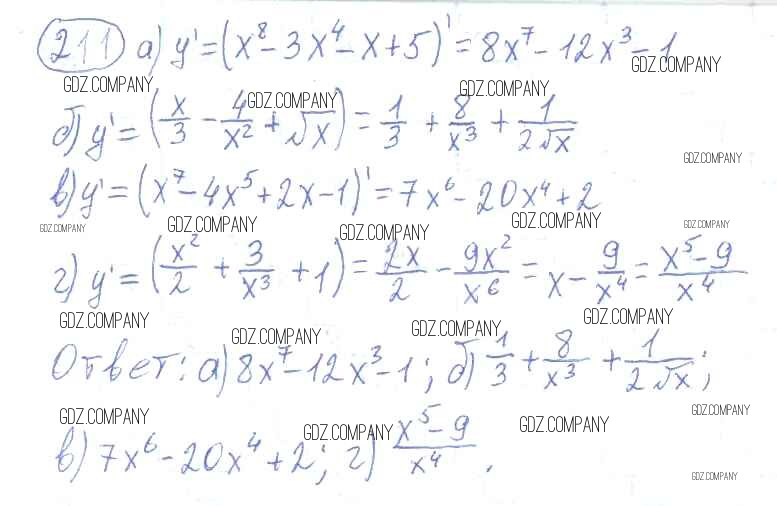 211 а) y' = (x⁸ - 3x⁴ - x + 5)' = 8x⁷ - 12x³ - 1
GDZ.COMPANY
GDZ.COMPANY GDZ.COMPANY
GDZ.COMPANY
б) y' = (x/3 - 4/x² + √x)' = 1/3 + 8/x³ + 1/(2√x)
GDZ.COMPANY
в) y' = (x⁷ - 4x⁵ + 2x - 1)' = 7x⁶ - 20x⁴ + 2
GDZ.COMPANY GDZ.COMPANY GDZ.COMPANY GDZ.COMPANY GDZ.COMPANY
г) y' = (x²/2 + 3/x³ + 1)' = 2x/2 - 9x²/x⁶ = x - 9/x⁴ = (x⁵ - 9)/x⁴
GDZ.COMPANY GDZ.COMPANY GDZ.COMPANY GDZ.COMPANY
Ответ: а) 8x⁷ - 12x³ - 1; б) 1/3 + 8/x³ + 1/(2√x);
GDZ.COMPANY GDZ.COMPANY GDZ.COMPANY GDZ.COMPANY
в) 7x⁶ - 20x⁴ + 2; г) (x⁵ - 9)/x⁴.
GDZ.COMPANY